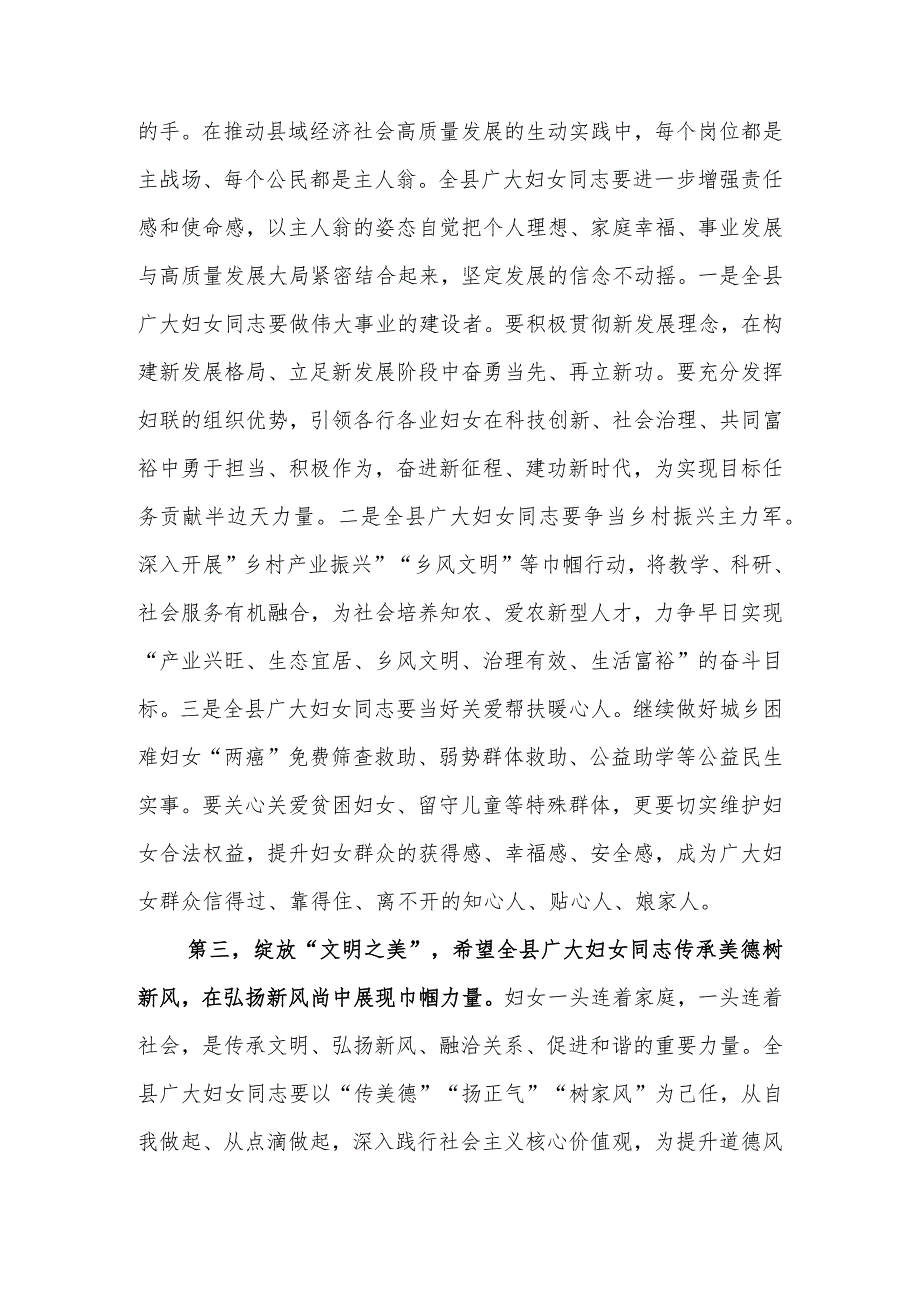 的手。在推动县域经济社会高质量发展的生动实践中，每个岗位都是
主战场、每个公民都是主人翁。全县广大妇女同志要进一步增强责任
感和使命感，以主人翁的姿态自觉把个人理想、家庭幸福、事业发展
与高质量发展大局紧密结合起来，坚定发展的信念不动摇。一是全县
广大妇女同志要做伟大事业的建设者。要积极贯彻新发展理念，在构
建新发展格局、立足新发展阶段中奋勇当先、再立新功。要充分发挥
妇联的组织优势，引领各行各业妇女在科技创新、社会治理、共同富
裕中勇于担当、积极作为，奋进新征程、建功新时代，为实现目标任
务贡献半边天力量。二是全县广大妇女同志要争当乡村振兴主力军。
深入开展”乡村产业振兴”“乡风文明”等巾帼行动，将教学、科研、
社会服务有机融合，为社会培养知农、爱农新型人才，力争早日实现
“产业兴旺、生态宜居、乡风文明、治理有效、生活富裕”的奋斗目
标。三是全县广大妇女同志要当好关爱帮扶暖心人。继续做好城乡困
难妇女“两癌”免费筛查救助、弱势群体救助、公益助学等公益民生
实事。要关心关爱贫困妇女、留守儿童等特殊群体，更要切实维护妇
女合法权益，提升妇女群众的获得感、幸福感、安全感，成为广大妇
女群众信得过、靠得住、离不开的知心人、贴心人、娘家人。
第三，绽放“文明之美”，希望全县广大妇女同志传承美德树
新风，在弘扬新风尚中展现巾帼力量。妇女一头连着家庭，一头连着
社会，是传承文明、弘扬新风、融洽关系、促进和谐的重要力量。全
县广大妇女同志要以“传美德”“扬正气”“树家风”为己任，从自
我做起、从点滴做起，深入践行社会主义核心价值观，为提升道德风